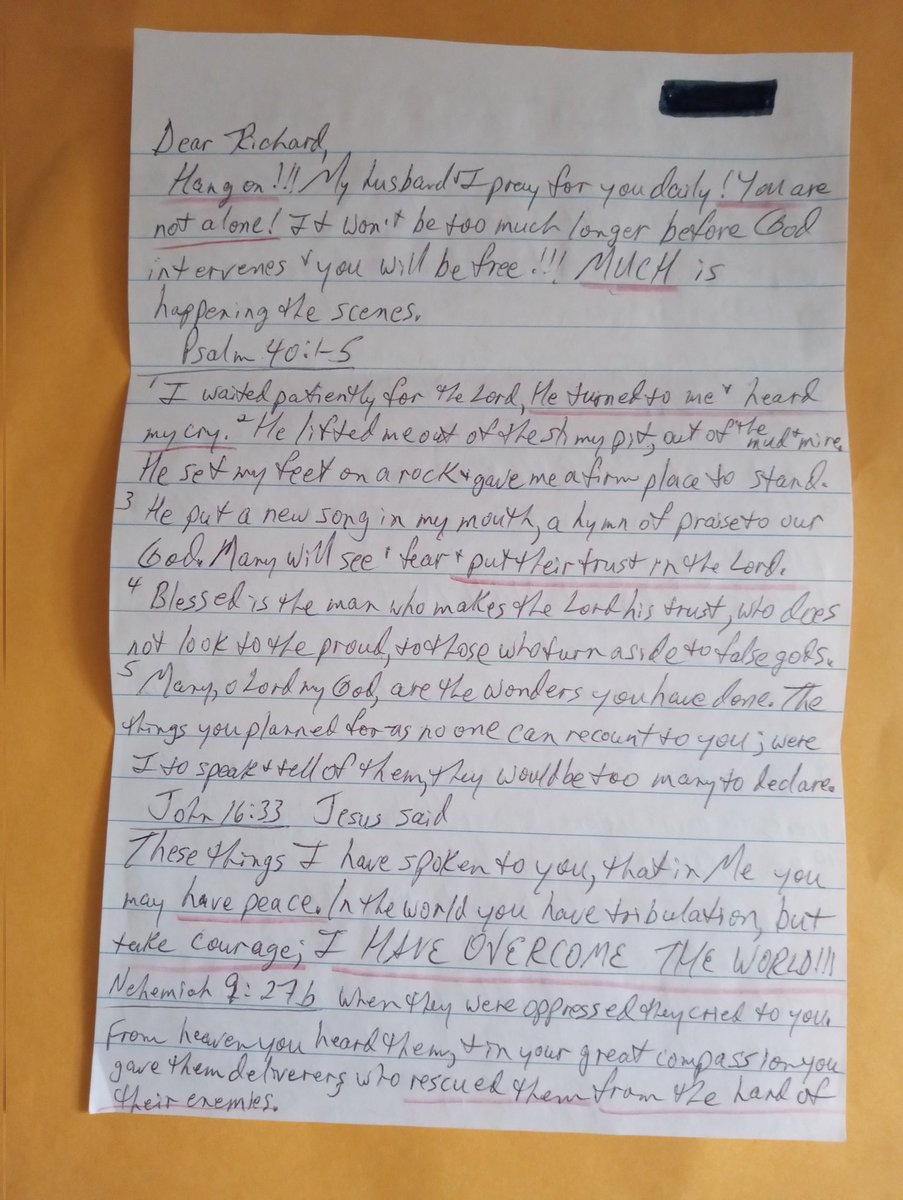 Dear Richard,
Hang on!!! My husband & I pray for you daily! You are
not alone! It won't be too much longer before God
intervenes & you will be free!!! MUCH is
happening the scenes.
Psalm 40:1-5
1 I waited patiently for the Lord, He turned to me & heard
my cry. 2 He lifted me out of the slimy pit, out of the mud & mire.
He set my feet on a rock & gave me a firm place to stand.
3 He put a new song in my mouth, a hymn of praise to our
God. Many will see & fear & put their trust in the Lord.
4 Blessed is the man who makes the Lord his trust, who does
not look to the proud, to those who turn aside to false gods.
5 Many, o Lord my God, are the wonders you have done. The
things you planned for as no one can recount to you; were
I to speak & tell of them, they would be too many to declare.
John 16:33 Jesus said
These things I have spoken to you, that in Me you
may have peace. In the world you have tribulation, but
take courage; I HAVE OVERCOME THE WORLD!!!
Nehemiah 9:27b When they were oppressed they cried to you.
From heaven you heard them, & in your great compassion you
gave them deliverers, who rescued them from the hand of
their enemies.